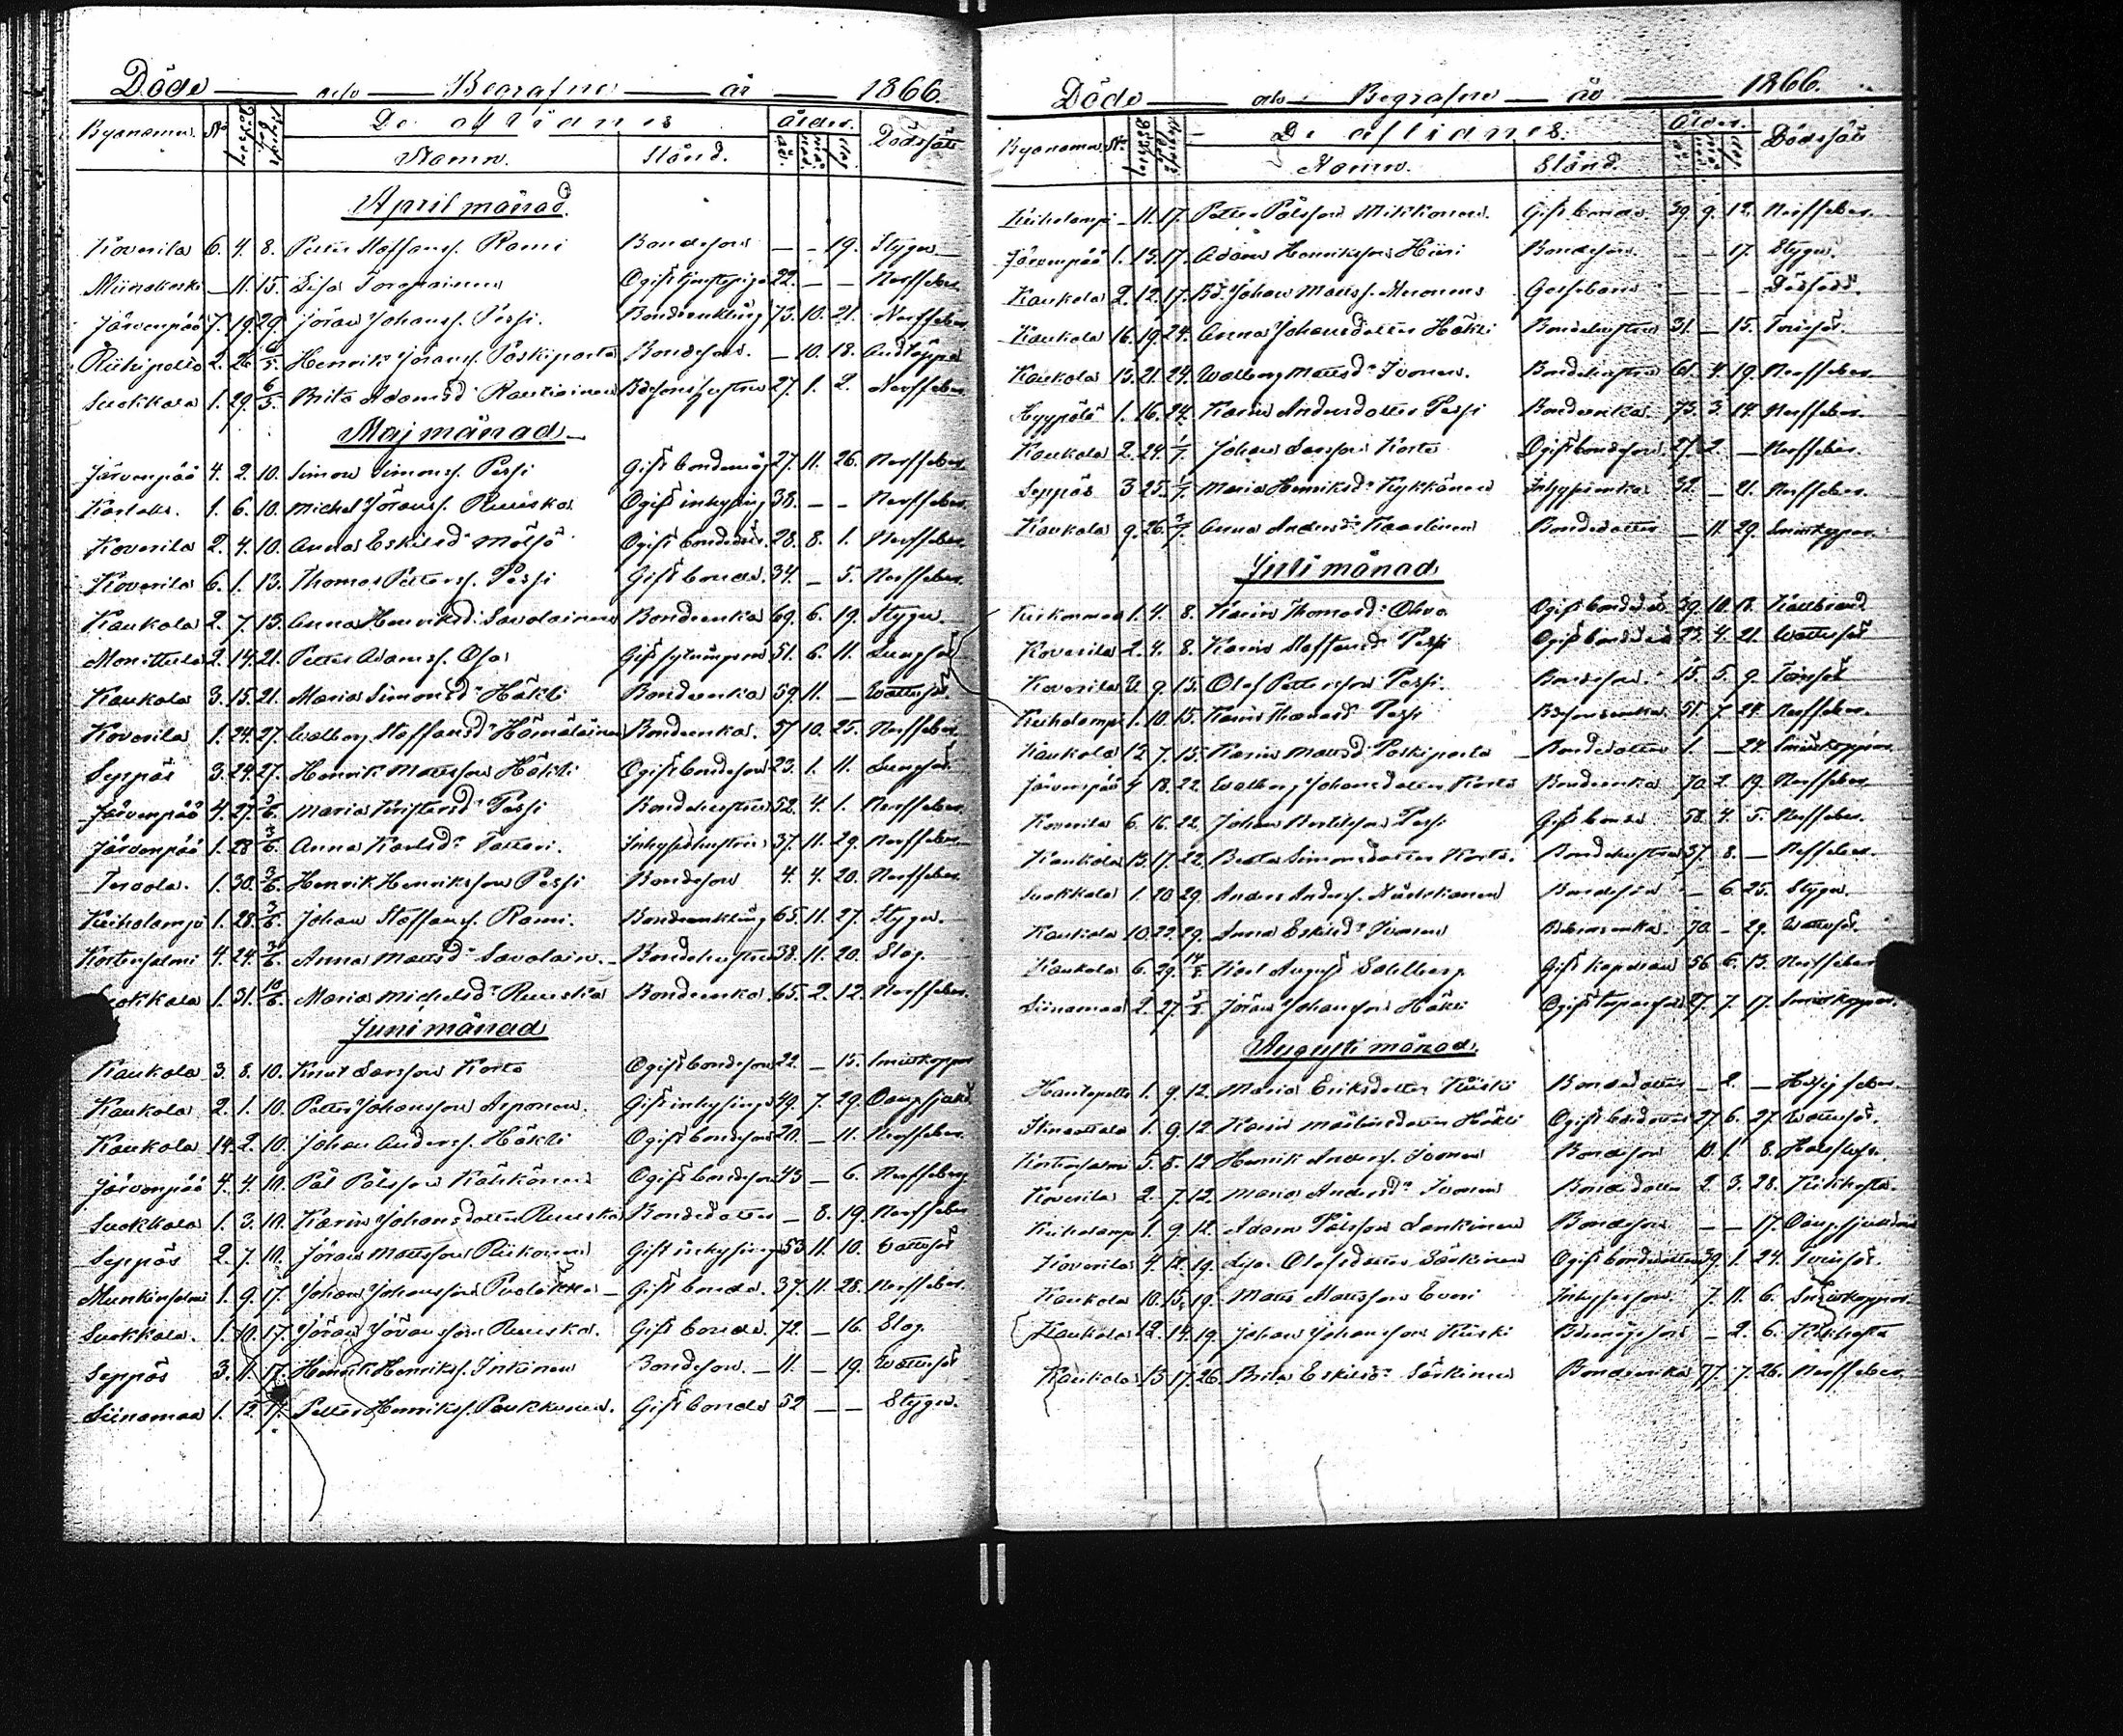 Döde och Begrafne år 1866.
Byanamn. No De aflidnes Ålder. Dödssätt
Namn. Stånd. år.
April månad.
Koverila 6. 4. 8. Petter Staffansf. Rami Bondeson — — 19. Stygn
Miinakoski — 11. 15. Lisa Ogift tjenstepiga 22. — — Nerffeber
Järvenpää 7. 19. 29. Jöran Johansf. Pessi. Bondeenkling 73. 10. 21. Nerffeber
Riihipelto 2. 26. 6/5. Henrik Jöransf. Paskiparta Bondeson. — 10. 18. Andtäppa
Suokkala 1. 29. 6/5. Brita Adamsd:r Rautiainen 27. 1. 2. Nerffeber
Maj månad
Järvenpää 4. 2. 10. Simon Simonsf. Pessi Gift bondemåg 27. 11. 26. Nerffeber
1. 6. 10. Michel Jöransf. Ruuska Ogift inhysing 38. — — Nerffeber.
Koverila 2. 4. 10. Anna Eskilsd:r Mölsö Ogift bondedot. 28. 8. 1. Nerffeber.
Koverila 6. 1. 13. Thomas Pettersf. Pessi Gift bonde. 34. — 5. Nerffeber
Kaukola 2. 7. 13. Anna Henriksd: Savolainen Bondeenka 69. 6. 19. Stygn.
Monittula 2. 14. 21. Petter Adamsf. Gift 51. 6. 11. Lungsot
Kaukola 3. 15. 21. Maria Simonsd:r Häkli Bondeenka 59. 11. — Wattusot
Koverila 1. 24. 27. Walborg Staffansd:r Hämäläinen Bondeenka. 57 10. 25. Nerffeber.
Seppäs 3. 24. 27. Henrik Mattsson Häkli Ogift bondeson 23. 1. 11. Lungsot.
Järvenpää 4. 27. 3/6. Maria Kristersd:r Pessi Bondehustru 52. 4. 1. Nerffeber.
Järvenpää 1. 28. 3/6. Anna Karlsd:r Tatteri. Inhysishustru 37. 11. 29. Nerffeber
Tervola. 1. 30. 3/6. Henrik Henriksson Pessi Bondeson 4. 4. 20. Nerffeber
Kiiholampi 1. 28. 3/6. Johan Staffansf. Rami. Bondeenkling 65. 11. 27. Stygn.
Kortensalmi 4. 24. 3/6. Anna Mattsd:r Savolain. Bondehustru 38. 11. 20. Slag.
Suokkala 1. 31. 10/6. Maria Michelsd:r Ruuska Bondeenka. 65. 2. 12. Nerffeber.
Juni månad
Kaukola 3. 8. 10. Knut Larsson Korte Ogift bondeson 22. — 15. Småkoppor
Kaukola 2. 1. 10. Petter Johansson Arponen. Gift inhysing 49. 7. 29.
Kaukola 14. 2. 10. Johan Andersf. Häkli Ogift bondeson 20. — 11. Nerffeber
Järvenpää 4. 4. 10. Pål Pålsson Käkkönen Ogift bondeson 43 — 6. Nerffeber
Suokkala 1. 3. 10. Karin Johansdotter Ruuska Bondedotter — 8. 19. Nerffeber
Seppäs 2. 7. 10. Jöran Mattsson Riikonen Gift inhysing 53. 11. 10. Wattusot
Munkinsalmi 1. 9. 17. Johan Johansson Puolakka Gift bonde. 37. 11. 28. Nerffeber
Suokkala. 1. 10. 17. Jöran Jöransson Ruuska. Gift bonde. 72. — 16. Slag.
Seppäs 3. 11. 17. Henrik Henriksf. Inkinen Bondeson. 11. — 19. Wattusot
Siinamaa 1. 12. 17. Petter Henriksf. Paukkunen. Gift bonde 52 — — Stygn.
Döde och Begrafne år 1866.
Byanamn No De aflidnes Ålder. Dödssätt
Namn. Stånd.
Kiiholampi — 11. 17. Petter Pålsson Mikkonen. Gift bonde 39 9. 12. Nerffeber.
Järvenpää 1. 13. 17. Adam Henriksson Hiiri Bondeson. — — 17. Stygn.
Kaukola 2. 12. 17. Bd. Johan Mattsf. Muonens Gossebarn — — — Dödfödd.
Kaukola 16. 19. 24. Anna Johansdotter Häkli Bondehustru 31. — 15. Tvinsot.
Kaukola 15. 21. 24. Walborg Mattsd:r Ivonen. Bondehustru 61. 4. 19. Nerffeber.
Hyypölä 1. 16. 24. Karin Andersdotter Pessi Bondeenka 73. 3. 14. Nerffeber.
Kaukola 2. 24. 1/7. Johan Larsson Korte Ogift bondeson. 27. 2. — Nerffeber.
Seppäs 3 25. 1/7. Maria Henriksd:r Kykkänen Inhysisenka 32. — 21. Nerffeber.
Kaukola 9. 26. 1/7. Anna Andersd:r Kaartinen Bondedotter — 11. 29. Småkoppor.
Juli månad
1. 4. 8. Karin Thomasd: Ohvo Ogift bondedot. 29. 10. 18. Kallbrand
Koverila 2. 4. 8. Karin Staffansd:r Pessi Ogift bondedot 4. 21. Wattusot
Koverila 2. 9. 15. Olof Pettersson Pessi. Bondeson 15. 5. 9. Tvinsot
Kiiholampi 1. 10. 15. Karin Thomasd:r Pessi 51. 7. 24. Nerffeber.
Kaukola 12. 7. 15. Karin Mattsd:r Paskiparta Bondedotter 1. — 24. Småkoppor
Järvenpää 4 18. 22. Walborg Johansdotter Korte Bondeenka 70. 2. 19. Nerffeber.
Koverila 6. 16. 22. Johan Pessi Gift bonde 58. 4. 5. Nerffeber.
Kaukola 13. 17. 22. Beata Simonsdotter Korte. Bondehustru 37. 8. — Neffeber.
Suokkala 1. 20. 29. Anders Andersf. Bondeson — 6. 25. Stygn.
Kaukola 10. 22. 29. Anna Eskilsd:r Ivonen 70. — 29. Wattusot.
Kaukola 6. 29. 14/8. Karl August Sahlberg. Gift kapellan 56 6. 13. Nerffeber
Siinamaa 2. 27. 5/8. Jöran Johansson Häkli Ogift 27. 7. 17. Småkoppor.
Augusti månad.
1. 9. 12. Maria Eriksdotter Kiiski Bondedotter — 2. —
1. 9. 12. Karin Häkli Ogift bondedotter 27. 6. 27. Wattusot.
Kortensalmi 5. 5. 12. Henrik Andersf. Ivonen Bondeson 10. 1. 8.
Koverila 2. 7. 12. Maria Andersd:r Ivonen Bondedotter 2. 3. 28. Kikhosta.
Kiiholampi 1. 9. 12. Adam Pålsson Lankinen Bondeson — — 17.
Koverila 4. 12. 19. Lisa Olofsdotter Särkinen Ogift bondedotter 39. 1. 24. Tvinsot.
Kaukola 10. 15. 19. Matts Mattsson Everi Inhysesson. 7. 11. 6. Småkoppor.
Kaukola 12. 14. 19. Johan Johansson Kiiski Bdemågsson — 2. 6. Kikhosta
Kaukola 15 17. 26. Brita Eskilsd:r Särkinen Bondeenka 77. 7. 26. Nerffeber.